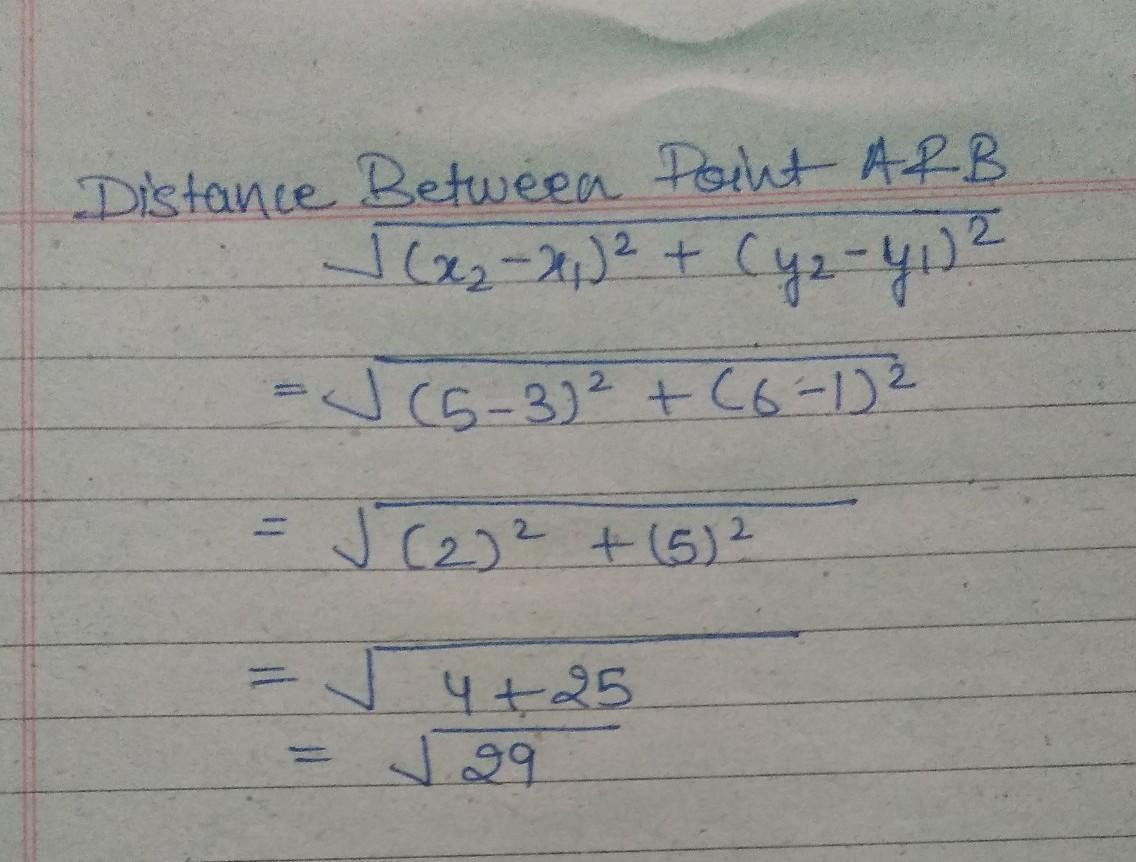 Distance Between Point A & B
√(x₂-x₁)² + (y₂-y₁)²
= √(5-3)² + (6-1)²
= √(2)² + (5)²
= √4+25
= √29